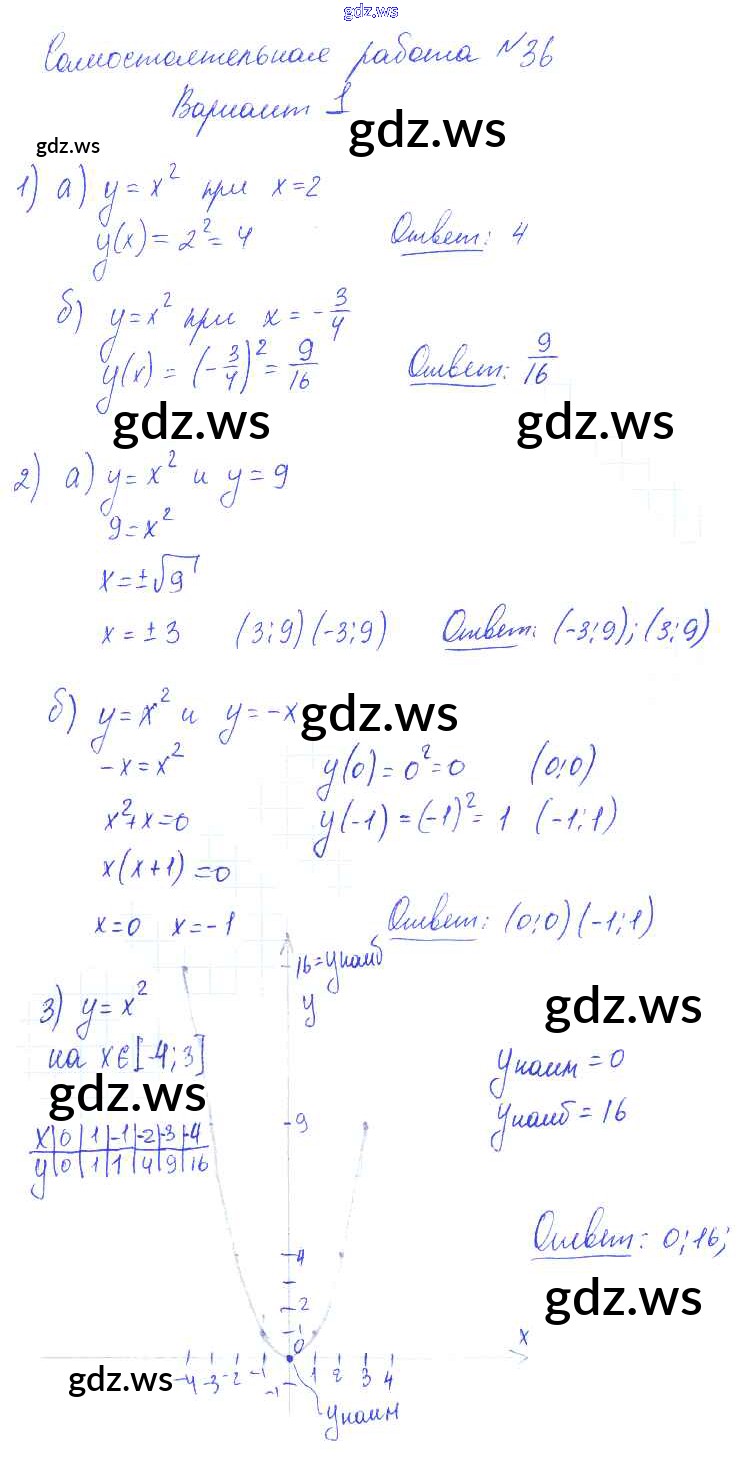 gdz.ws
Самостоятельная работа №36
Вариант 1
gdz.ws
gdz.ws
1) а) y = x² при x=2
y(x) = 2² = 4 Ответ: 4
б) y = x² при x = -3/4
y(x) = (-3/4)² = 9/16 Ответ: 9/16
gdz.ws gdz.ws
2) а) y = x² и y = 9
9 = x²
x = ±√9
x = ± 3 (3;9) (-3;9) Ответ: (-3;9); (3;9)
б) y = x² и y = -x
gdz.ws
-x = x² y(0) = 0² = 0 (0;0)
x²+x=0 y(-1) = (-1)² = 1 (-1;1)
x(x+1) = 0
x=0 x=-1 Ответ: (0;0) (-1;1)
16 = yнаиб
3) y = x² y
gdz.ws
на x∈[-4;3] yнаим = 0
gdz.ws
yнаиб = 16
x 0 1 -1 -2 -3 -4
y 0 1 1 4 9 16
9
Ответ: 0; 16;
4
gdz.ws
2
1
0 x
-4 -3 -2 -1 1 2 3 4
gdz.ws
-1
yнаим